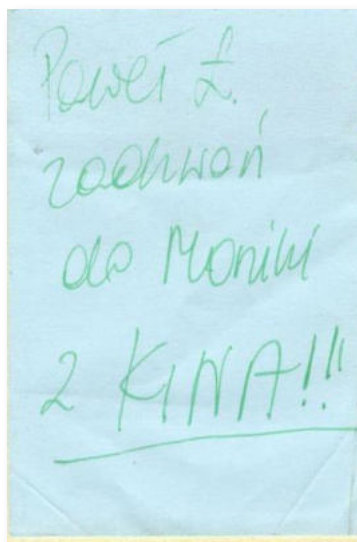 Paweł Ł.
zadzwoń
do Moniki
z KINA!!!